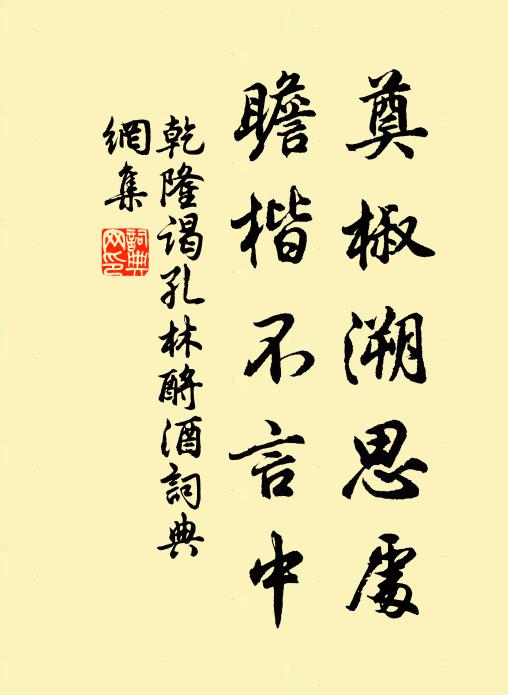 奠椒溯思處
瞻楷不言中
乾隆谒孔林酹酒詞典
網集
詞典
网印